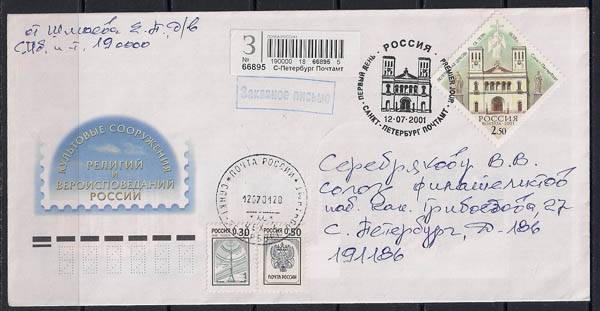 от Шмиева Е.П. д/в
СПб, п-т. 190000
З
№
66895
ПОЧТА РОССИИ
190000 18 66895 5
С-Петербург Почтамт
Заказное письмо
ПЕРВЫЙ ДЕНЬ · РОССИЯ · PREMIER JOUR
12-07-2001
САНКТ-ПЕТЕРБУРГ ПОЧТАМТ
РОССИЯ
ROSSIJA · 2001
2.50
КУЛЬТОВЫЕ СООРУЖЕНИЯ
РЕЛИГИЙ
И
ВЕРОИСПОВЕДАНИЙ
РОССИИ
ПОЧТА РОССИИ
РОССИЯ 0.30
РОССИЯ 0.50
ПОЧТА РОССИИ
Серебрякову В.В.
Союз филателистов
наб. кан. Грибоедова, 27
С. Петербург, Д-186
191186